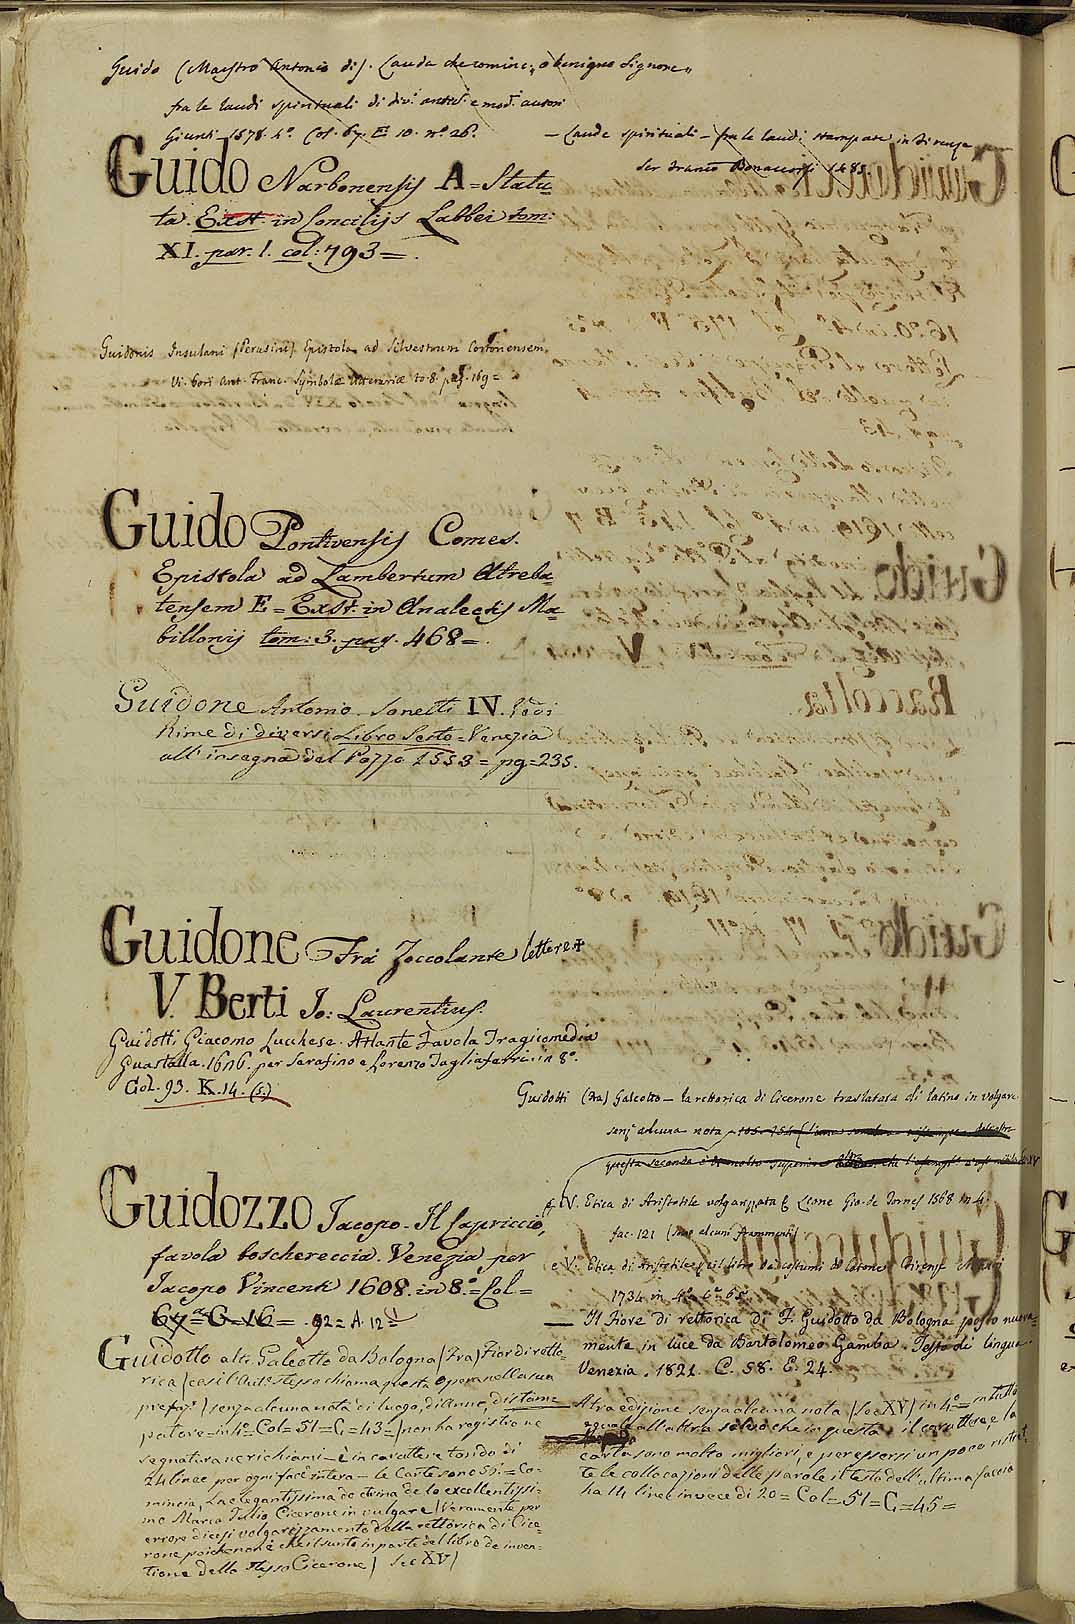 Guido (Maestro Antonio di). Lauda che cominc: o benigno Signore
fra le laudi spirituali di div. antich. e mod. autori
Giunti 1578. 4º. Col. 67. E. 10. nº 26.
— Laude spirituali — fra le laudi stampate in Firenze
Ser Franco Bonaccorsi 1485
Guido Narbonensis A = Statu=
ta. Exst. in Concilijs Labbei tom:
XI. par. 1. col: 793 = .
Guidonis Insulani (Perusini). Epistola ad Silvestrum Cortonensem
Vi. Gori Ant. Franc. Symbolæ litterariæ to. 8. pag. 169 =
Guido Pontivensis Comes.
Epistola ad Lambertum Atreba=
tensem E = Exst. in Analectis Ma=
billonij tom: 3. pag. 468 = .
Guidone Antonio. Sonetti IV. Vedi
Rime di diversi Libro Sesto = Venezia
all' insegna del Pozzo 1553 = pg = 235.
Guidone Frà Zoccolante lettere
V. Berti Jo: Laurentius.
Guidotti Giacomo Lucchese. Atlante Favola Tragicomedia
Guastalla. 1616. per Serafino e Lorenzo Tagliaferri. in 8º.
Col. 93. K. 14. (5.)
Guidotti (Fra) Galeotto — la rettorica di Cicerone traslatata di latino in volgare
senz' alcuna nota
questa seconda è di molto superiore
e V. Etica di Aristotile volgarizzata Leone Gio. de Tornes 1568 in 4.
fac. 121 (sono alcuni frammenti)
e V. Etica di Aristotile ed il libro de' costumi di Catone. Firenze Manni
1734 in 4º. Cº 65.
Guidozzo Jacopo. Il Capriccio,
favola boschereccia. Venezia per
Jacopo Vincenti 1608. in 8º. = Col =
67 = G = 16 = . 92 = A. 12 =
— Il Fiore di rettorica di F. Guidotto da Bologna posto nuova=
mente in luce da Bartolomeo Gamba. Testo di lingua.
Venezia. 1821. C. 58. E. 24.
Guidotto alt. Galeotto da Bologna (Fra) Fior di retto=
rica (così l'Aut. stesso chiama questa opera nella sua
prefaz.) senz' alcuna nota di luogo, di anno, di stam=
patore = in 4º = Col = 51 = G = 43 = (non ha registro ne
segnatura ne richiami = è in carattere tondo di
24 linee per ogni facc. intera = le Carte sono 55. = Co=
mincia, La elegantissima doctrina de lo excellentissi=
mo Marco Tullio Cicerone in vulgare (Veramente per
errore dicesi volgarizzamento della rettorica di Cice=
rone poichè non è che il sunto in parte del libro de inven=
tione dello stesso Cicerone) Sec XV)
Altra edizione senza alcuna nota (Sec XV) in 4º = in tutto
eguale all'altra salvo che in questa il carattere, e la
carta sono molto migliori, e per essersi un poco ristret=
te le collocazioni delle parole il testo dell'ultima faccia
ha 14 linee invece di 20 = Col = 51 = G = 45 =